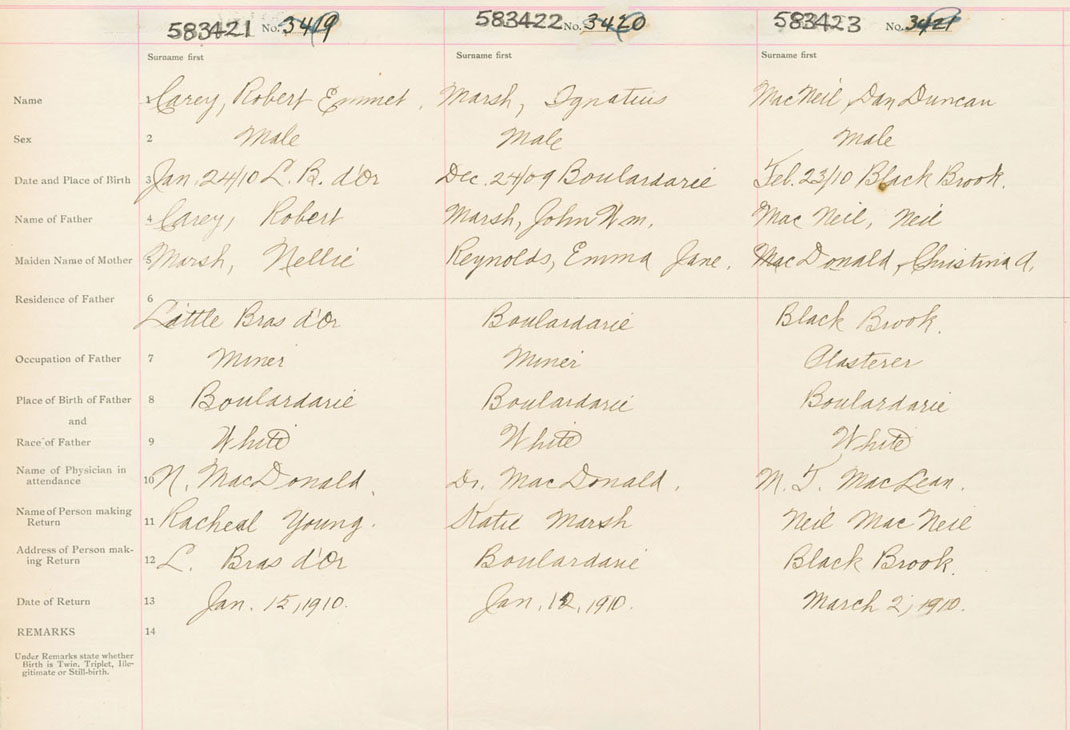 583421 No. 3419 583422 No. 3420 583423 No. 3421
Surname first Surname first Surname first
Name 1 Carey, Robert Emmet. Marsh, Ignatius MacNeil, Dan Duncan
Sex 2 Male Male Male
Date and Place of Birth 3 Jan. 24/10 L. B. d'Or Dec. 24/09 Boulardarie Feb. 23/10 Black Brook.
Name of Father 4 Carey, Robert Marsh, John Wm. Mac Neil, Neil
Maiden Name of Mother 5 Marsh, Nellie Reynolds, Emma Jane. MacDonald, Christina A.
Residence of Father 6
Little Bras d'Or Boulardarie Black Brook.
Occupation of Father 7 Miner Miner Plasterer
Place of Birth of Father 8 Boulardarie Boulardarie Boulardarie
and
Race of Father 9 White White White
Name of Physician in
attendance 10 N. MacDonald. Dr. MacDonald. M. T. MacLean.
Name of Person making
Return 11 Racheal Young. Katie Marsh Neil Mac Neil
Address of Person mak-
ing Return 12 L. Bras d'Or Boulardarie Black Brook.
Date of Return 13 Jan. 15, 1910. Jan. 12, 1910. March 2, 1910.
REMARKS 14
Under Remarks state whether
Birth is Twin, Triplet, Ille-
gitimate or Still-birth.